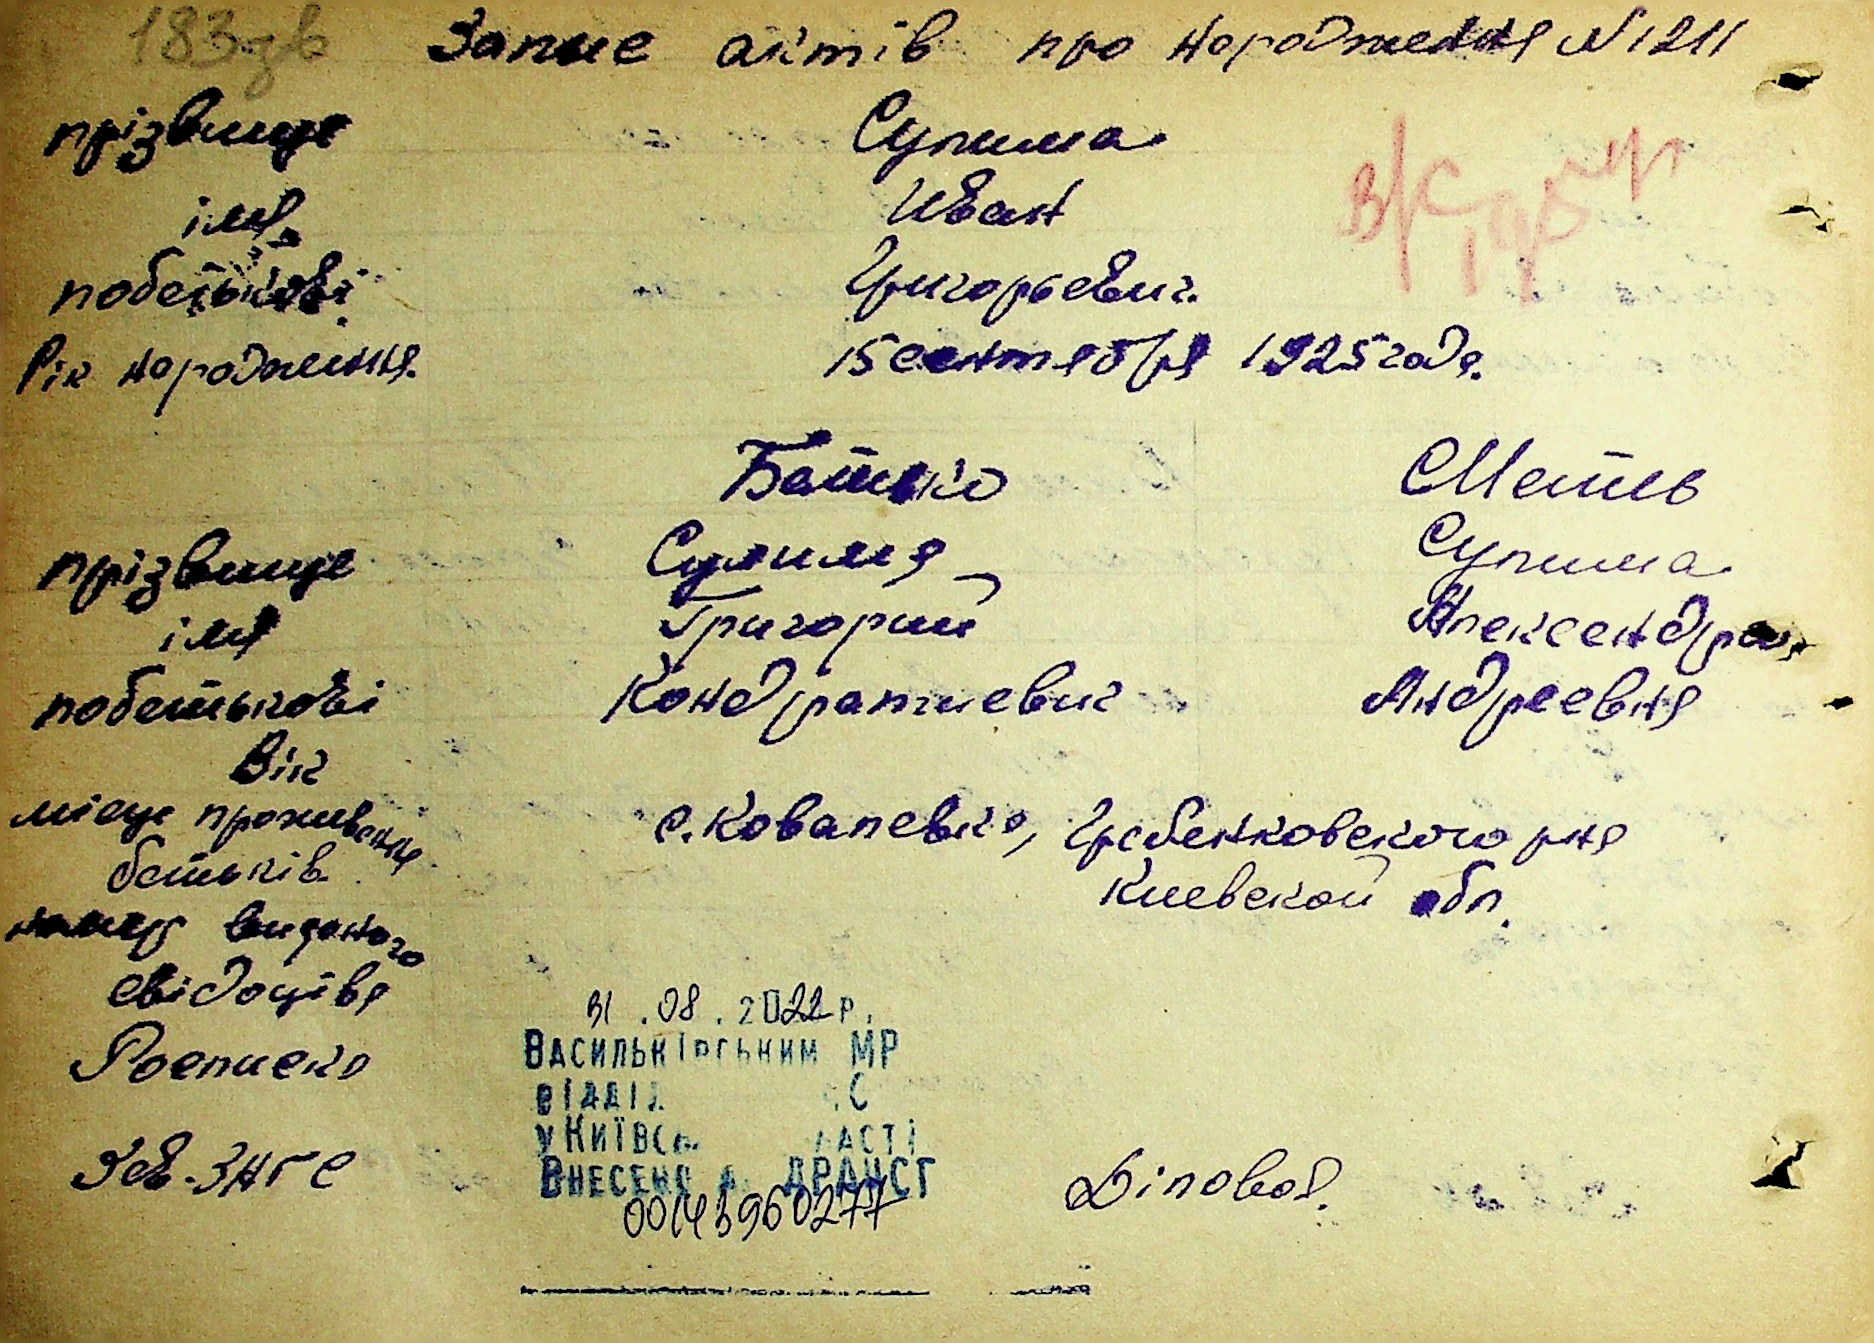 183 зв
Запис актів про народження N 1211
прізвище Сулима
імя Иван
побатькові Григорьевич.
Рік народження. 15 сентября 1925 года.
Батько Мать
прізвище Сулима Сулима
імя Григорий Александра
побатькові Кондратиевич Андреевна
Вік
місце проживання с. Ковалевка, Гребенковского рна
батьків. Киевской обл.
номер виданого
свідоцтва
31.08.2022 р.
Росписка Васильківським МР
відділ С
у Київсь ласті
Зав. ЗАГС Внесено д ДРАЦСГ Діловод.
00143960277